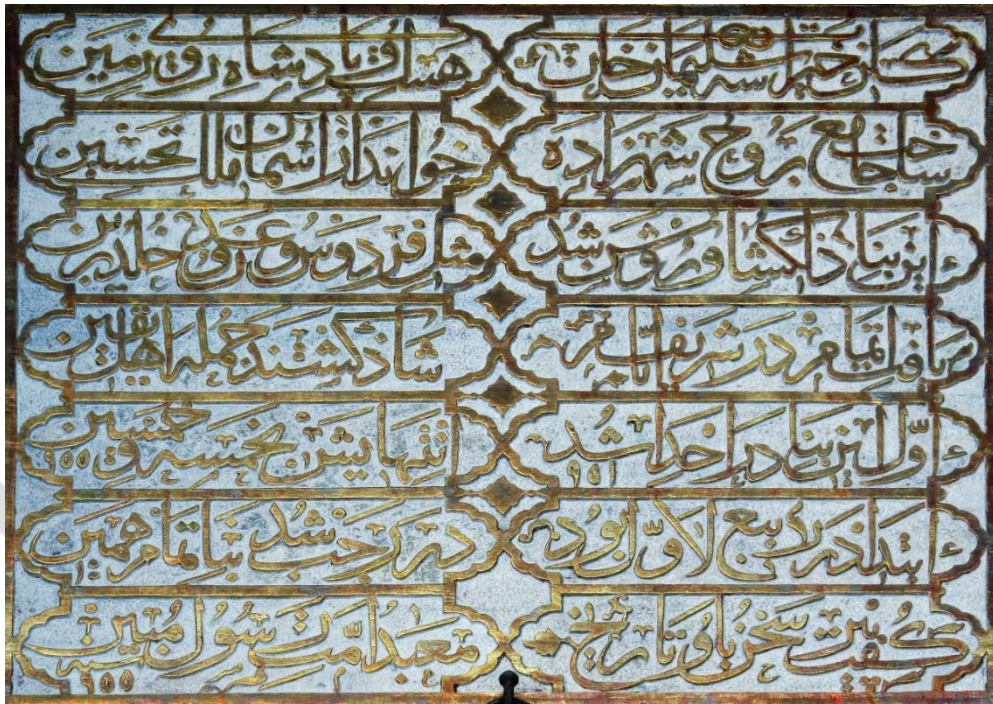 كان خيرات شه سليمان خان هست او پادشاه روی زمين
ساخت جامع بروح شهزاده خواند از آسمان ملك تحسين
اين بنا دلكشا و روشن شد مثل فردوس و عدن و خلد برين
يافت اتمام در شريف ايام شاد كشتند جمله اهل يقين
اول اين بنا در احدا شد ٩٥١ انتهايش بخمسه و خمسين ٩٥٥
ابتدا در ربيع الاول بود در رجب شد بنا تمام همين
كفت تاريخ معبد امت رسول مبين سنه ٩٥٥